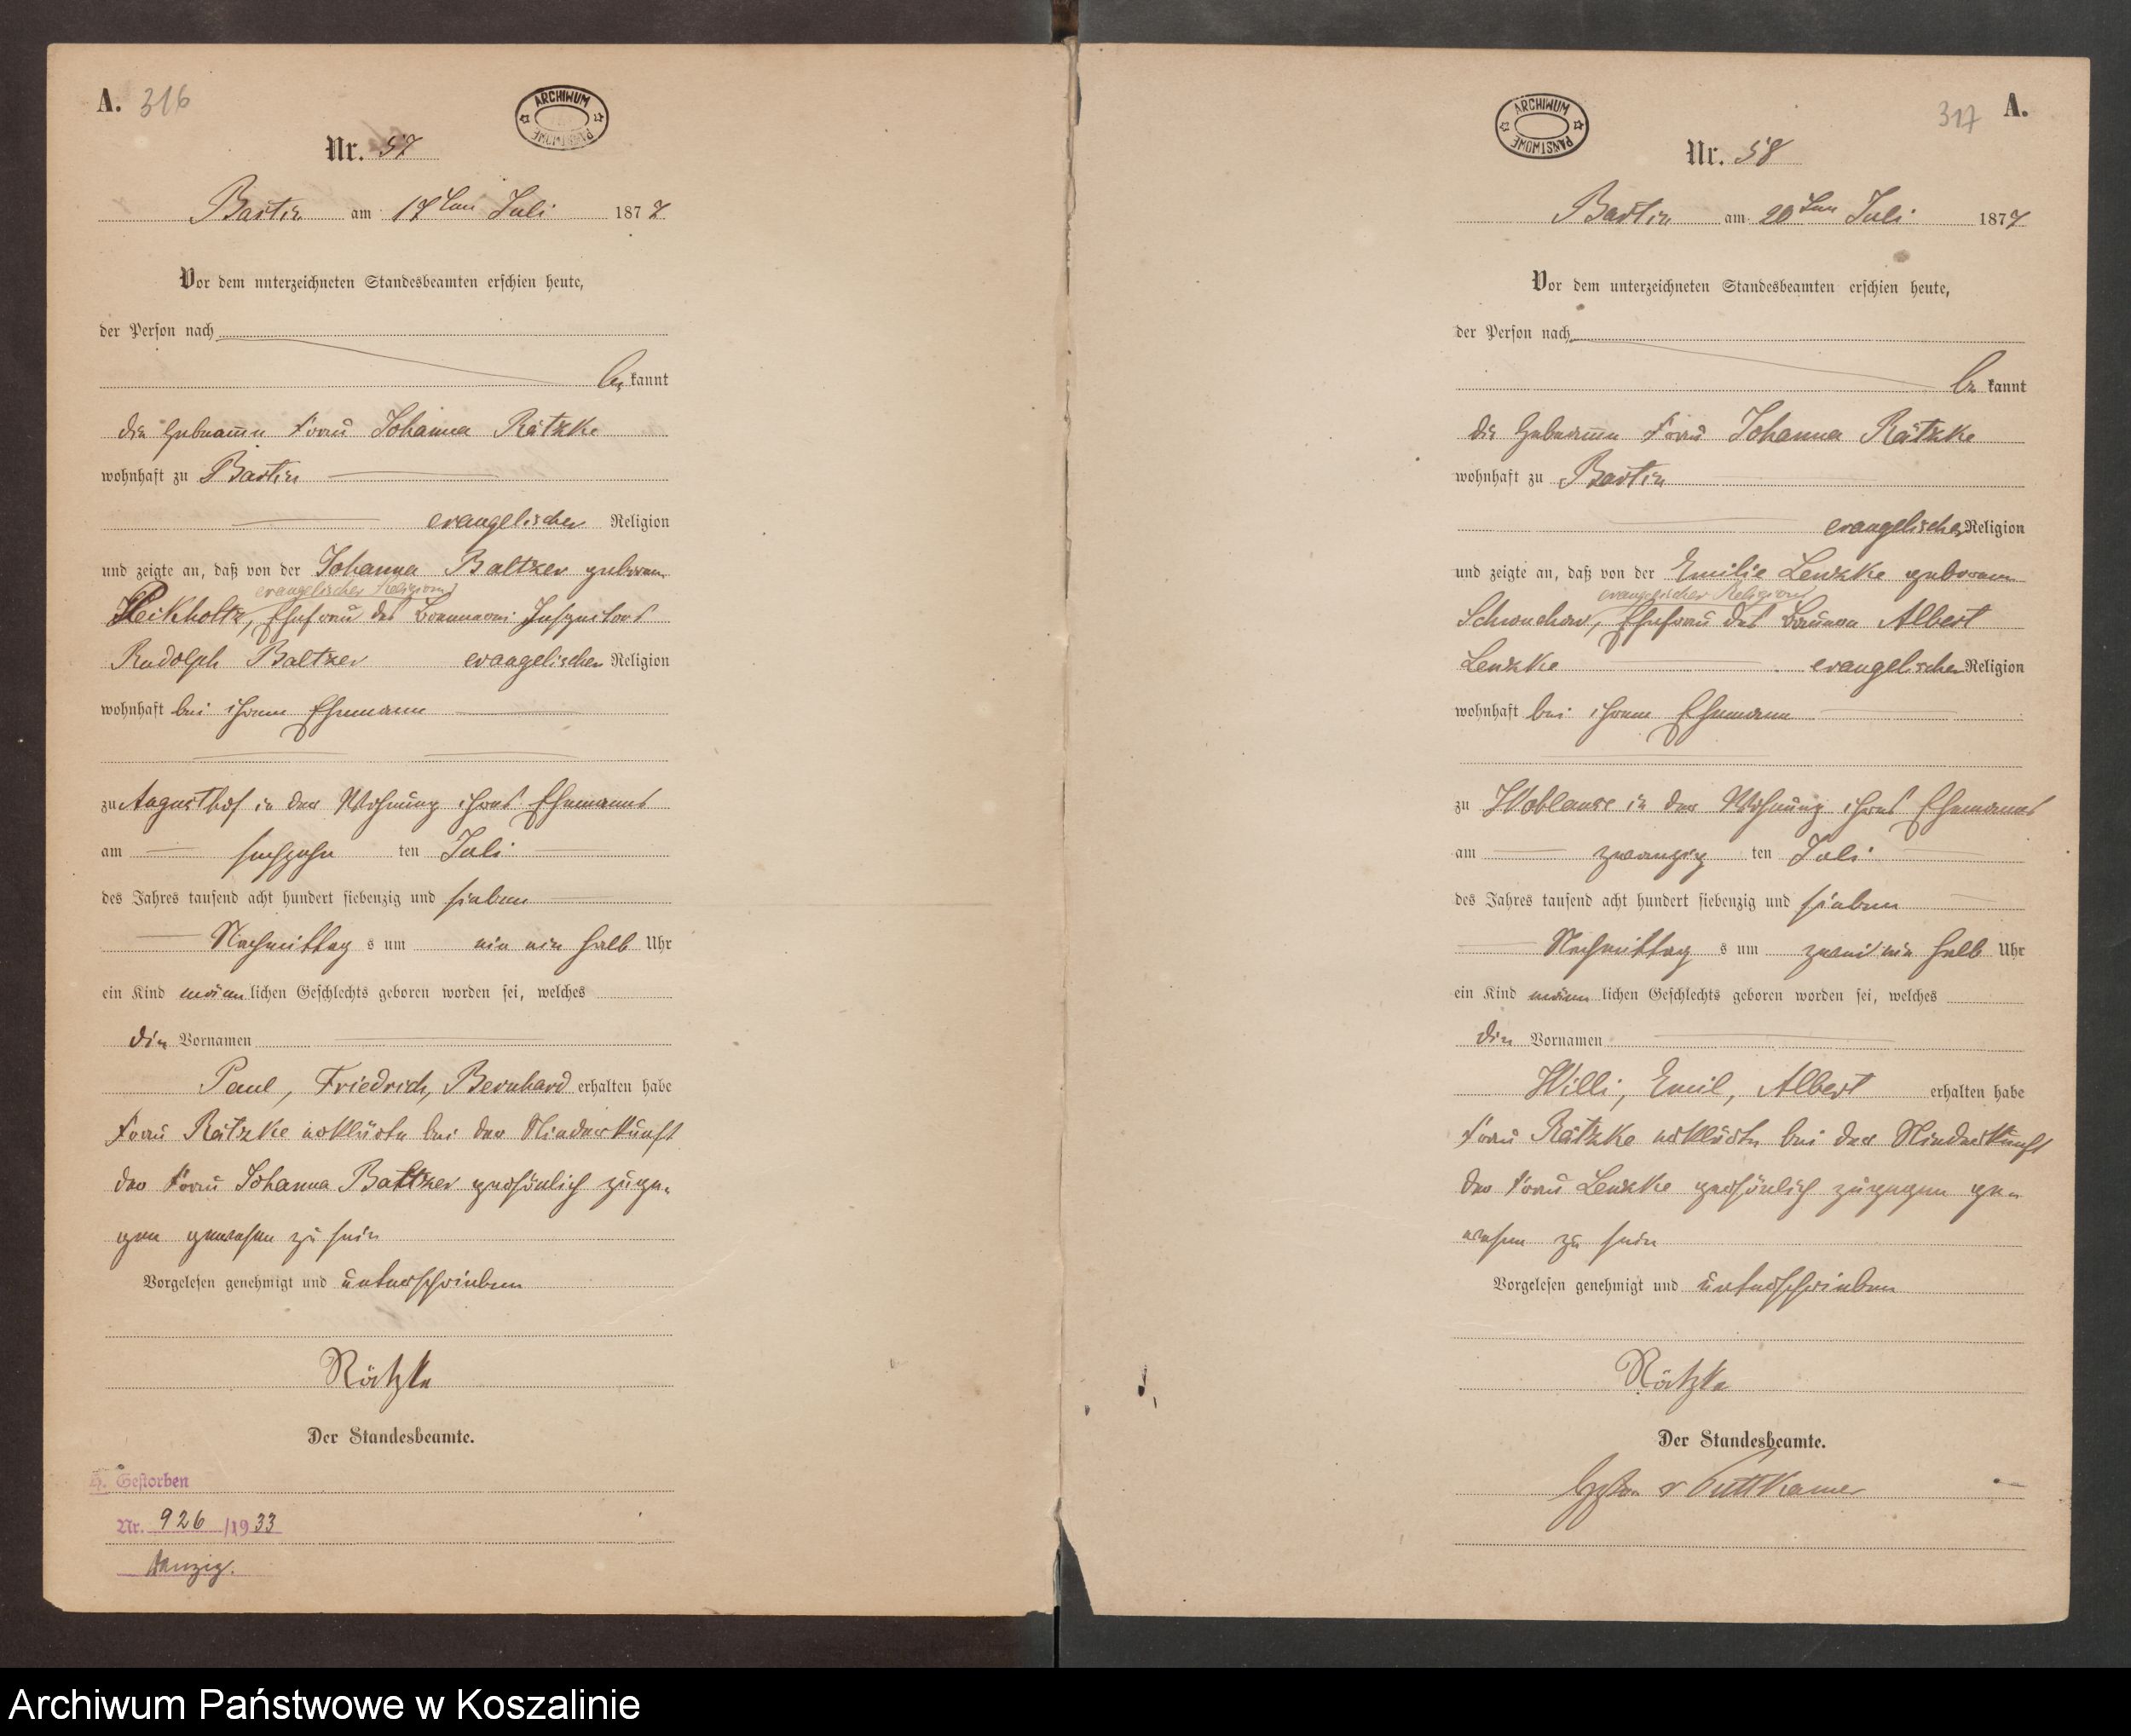 A. 316
ARCHIWUM PAŃSTWOWE
Nr. 57
Bartin am 17ten Juli 1877
Vor dem unterzeichneten Standesbeamten erschien heute,
der Person nach
be kannt
die Hebamme Frau Johanna Rätzke
wohnhaft zu Bartin
evangelischer Religion
und zeigte an, daß von der Johanna Baltzer geborene
evangelischer Religion
Ehefrau des Inspectors
Rudolph Baltzer evangelischer Religion
wohnhaft bei ihrem Ehemann
zu Augusthof in der Wohnung ihres Ehemannes
am sechszehn ten Juli
des Jahres tausend acht hundert siebenzig und sieben
Nachmittag s um ein ein halb Uhr
ein Kind männ lichen Geschlechts geboren worden sei, welches
die Vornamen
Paul, Friedrich, Bernhard erhalten habe
Frau Rätzke erklärte bei der Niederkunft
der Frau Johanna Baltzer persönlich zuge-
gen gewesen zu sein
Vorgelesen genehmigt und unterschrieben
Rätzke
Der Standesbeamte.
H. Gestorben
Nr. 926 /1933
Danzig.
317 A.
ARCHIWUM PAŃSTWOWE
Nr. 58
Bartin am 20ten Juli 1877
Vor dem unterzeichneten Standesbeamten erschien heute,
der Person nach
be kannt
die Hebamme Frau Johanna Rätzke
wohnhaft zu Bartin
evangelischer Religion
und zeigte an, daß von der Emilie Lenzke geborene
evangelischer Religion
Schwuchow, Ehefrau des Bauern Albert
Lenzke evangelischer Religion
wohnhaft bei ihrem Ehemann
zu Woblanse in der Wohnung ihres Ehemannes
am zwanzig ten Juli
des Jahres tausend acht hundert siebenzig und sieben
Nachmittag s um zwei ein halb Uhr
ein Kind männ lichen Geschlechts geboren worden sei, welches
die Vornamen
Willi, Emil, Albert erhalten habe
Frau Rätzke erklärte bei der Niederkunft
der Frau Lenzke persönlich zugegen ge-
wesen zu sein
Vorgelesen genehmigt und unterschrieben
Rätzke
Der Standesbeamte.
v Puttkamer
Archiwum Państwowe w Koszalinie